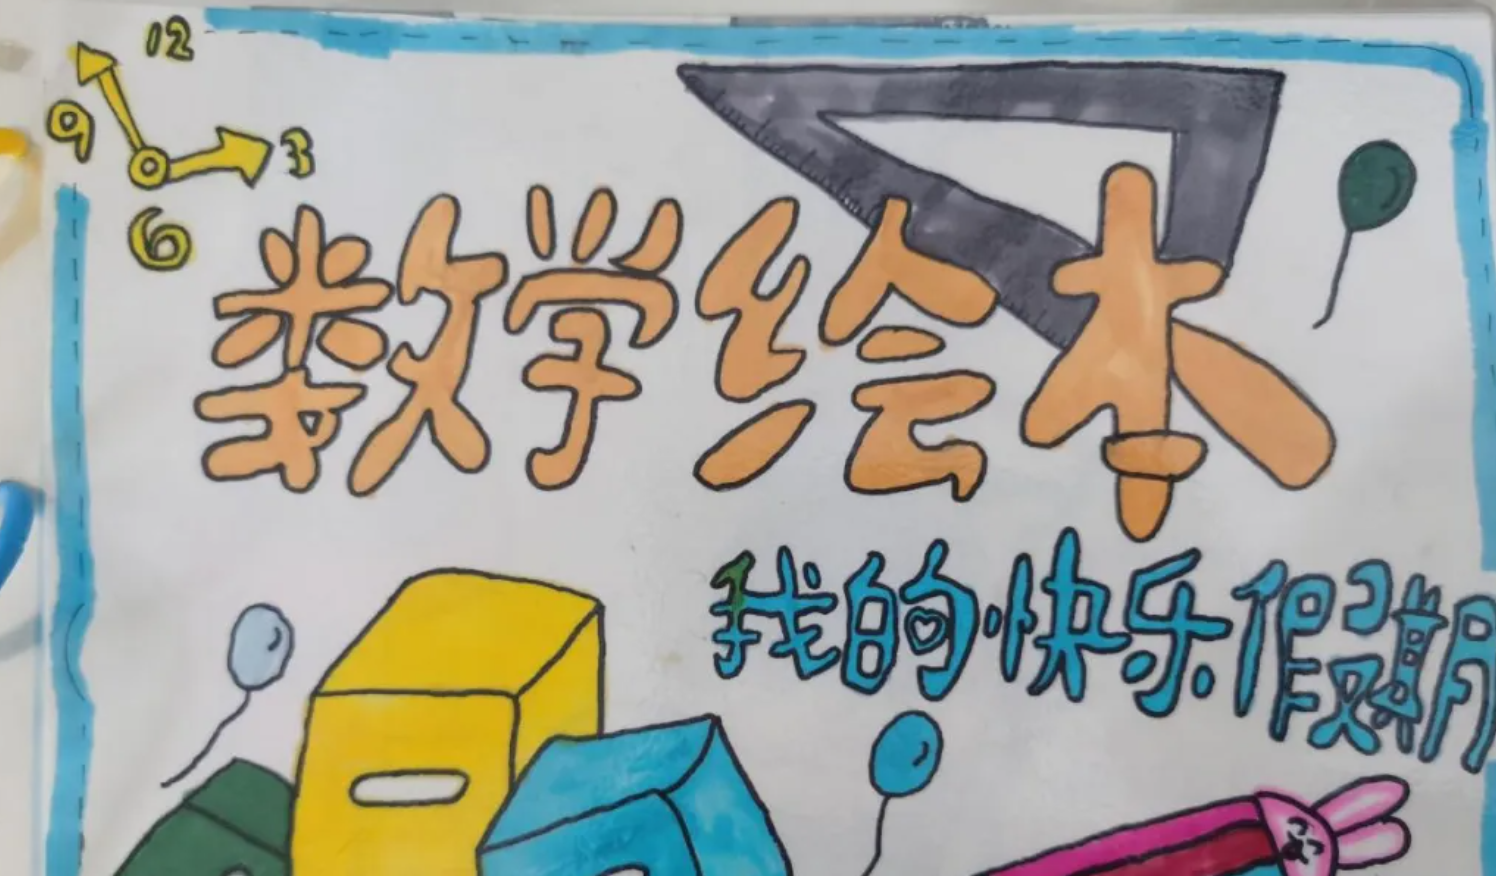 12
9
3
6
数学绘本
我的快乐假期